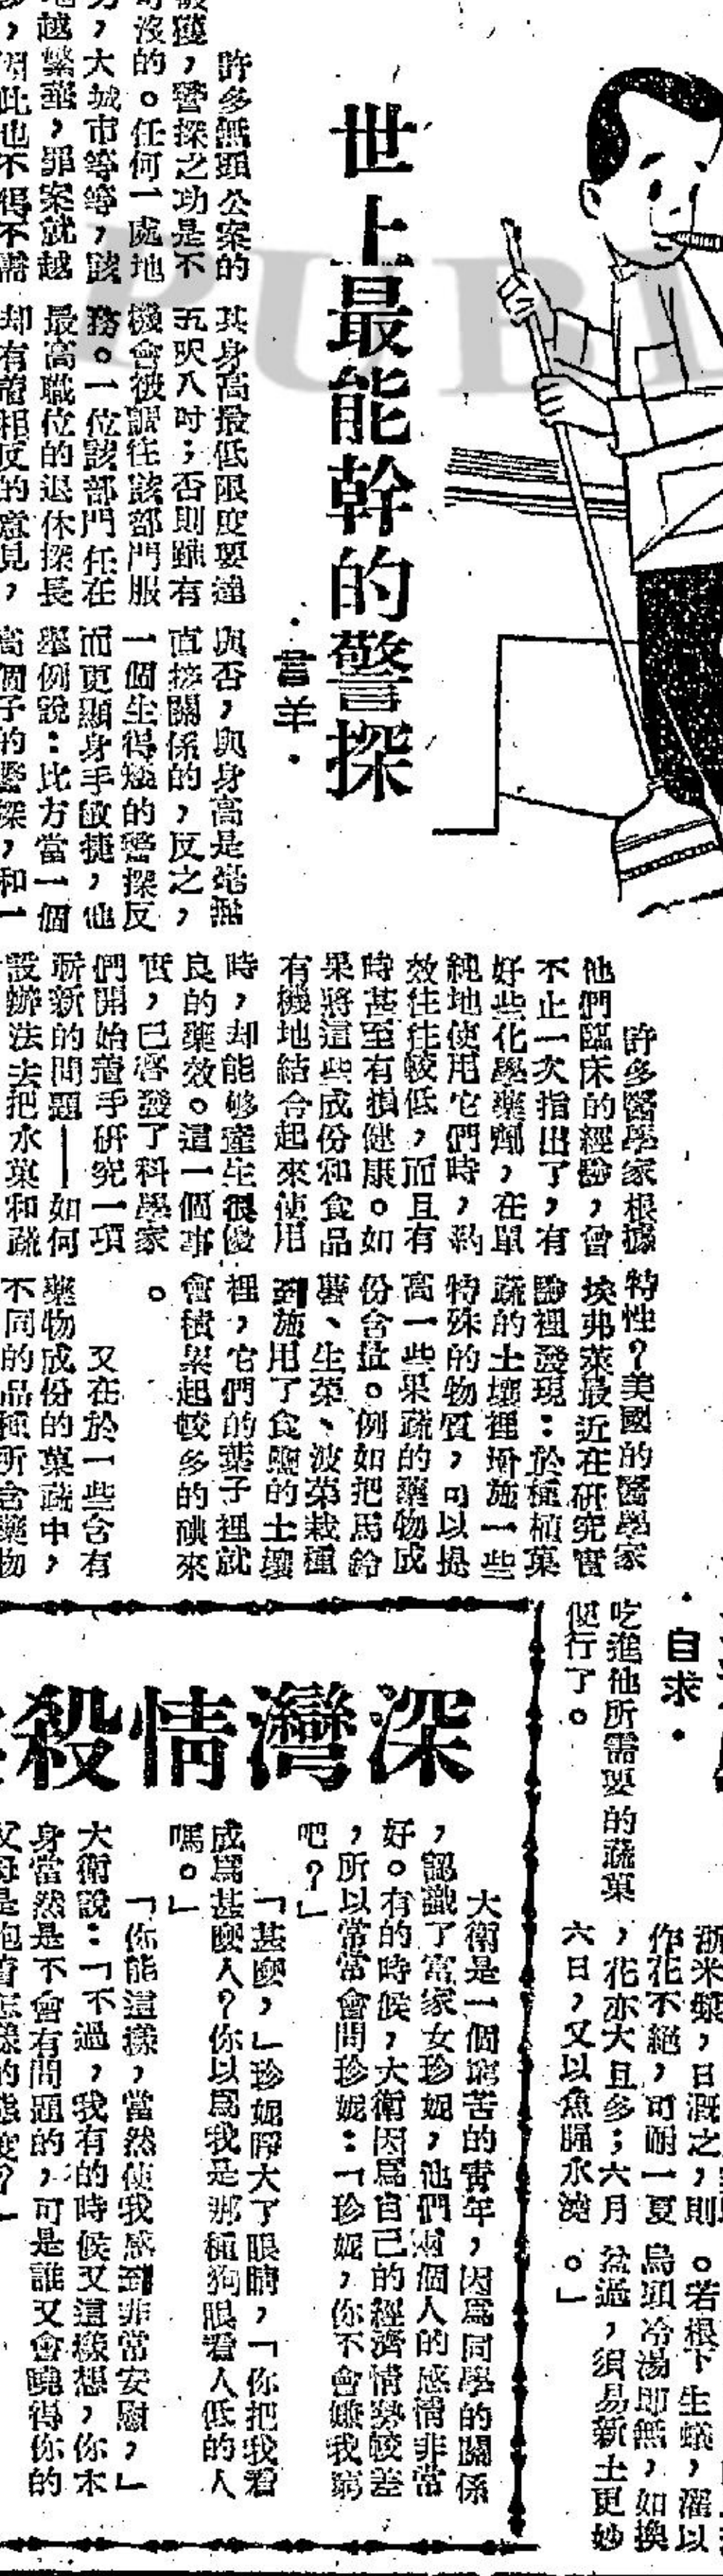 世上最能幹的警探
·言羊·
許多無頭公案的
破獲，警探之功是不
可沒的。任何一處地
方，大城市等等，該
地越繁華，罪案就越
多，因此也不得不需
其身高最低限度要達
五呎八吋；否則雖有
機會被調往該部門服
務。一位該部門任在
最高職位的退休探長
却有着相反的意見，
與否，與身高是毫無
直接關係的，反之，
一個生得矮的警探反
而更顯身手敏捷，他
舉例說：比方當一個
高個子的警探，和一
許多醫學家根據
他們臨床的經驗，曾
不止一次指出了，有
好些化學藥劑，在單
純地使用它們時，药
效往往較低，而且有
時甚至有損健康。如
果將這些成份和食品
有機地結合起來使用
時，却能够產生很優
良的藥效。這一個事
實，已啓發了科學家
們開始着手研究一項
嶄新的問題——如何
設辦法去把水菓和蔬
特性？美國的醫學家
埃弗萊最近在研究實
驗裡發現：於種植菓
蔬的土壤裡增施一些
特殊的物質，可以提
高一些果蔬的藥物成
份含量。例如把馬鈴
薯、生菜、波菜栽種
到施用了食鹽的土壤
裡，它們的葉子裡就
會積累起較多的碘來
。
又在於一些含有
藥物成份的菓蔬中，
不同的品種所含藥物
·自求·
吃進他所需要的蔬菓
便行了。
浙米泔，日溉之，則
作花不絕，可耐一夏
，花亦大且多；六月
六日，又以魚腥水澆
。若根下生蟻，濯以
烏頭冷湯即無，如換
盆過，須易新土更妙
。」
深灣情殺
大衛是一個窮苦的青年，因爲同學的關係
，認識了富家女珍妮，他們兩個人的感情非常
好。有的時候，大衛因爲自己的經濟情勢較差
，所以常常會問珍妮：「珍妮，你不會嫌我窮
吧？」
「甚麼，」珍妮睜大了眼睛，「你把我看
成爲甚麼人？你以爲我是那種狗眼看人低的人
嗎。」
「你能這樣，當然使我感到非常安慰，」
大衛說：「不過，我有的時候又這樣想，你本
身當然是不會有問題的，可是誰又會曉得你的
父母是抱着怎樣的態度？」